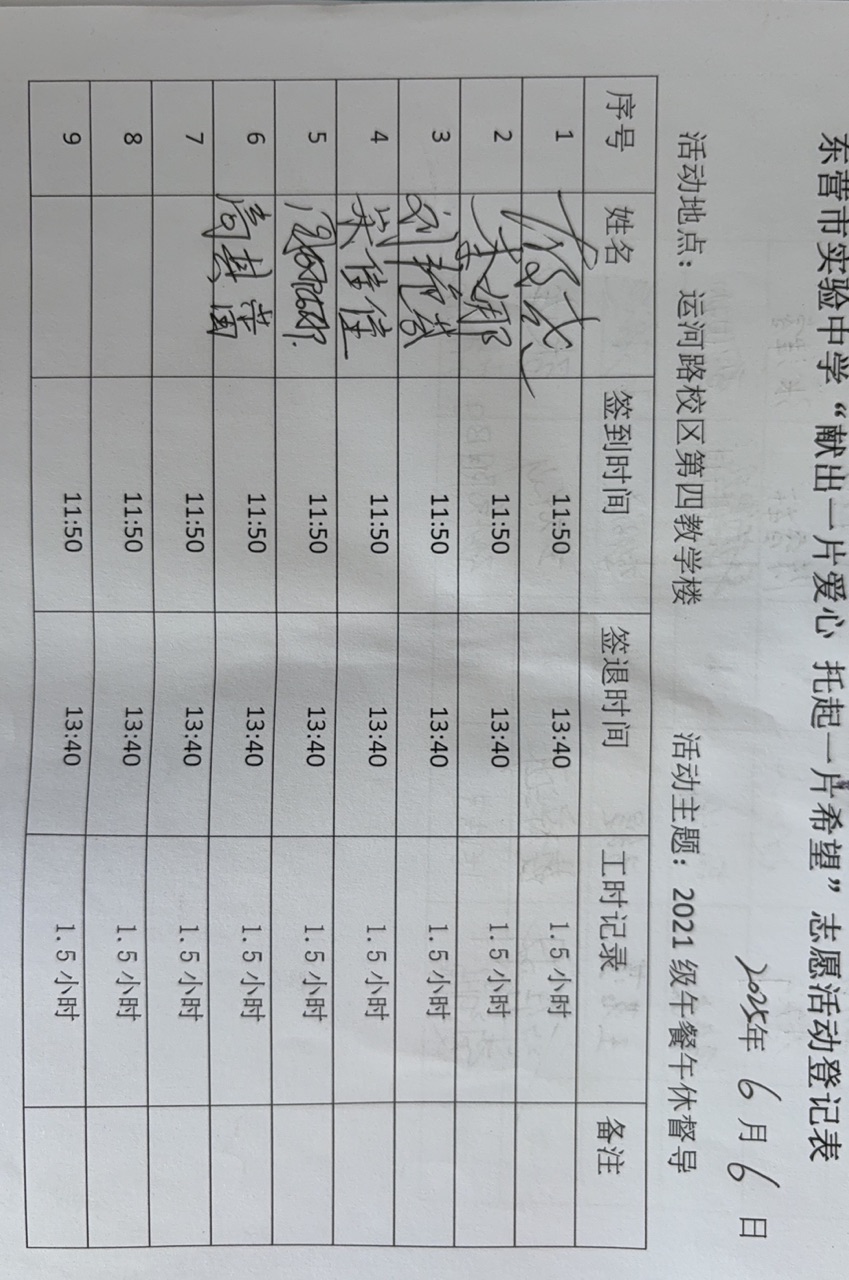 东营市实验中学“献出一片爱心 托起一片希望”志愿活动登记表
2025年 6 月 6 日
活动地点：运河路校区第四教学楼 活动主题：2021 级午餐午休督导
序号 姓名 签到时间 签退时间 工时记录 备注
1 11:50 13:40 1.5 小时
2 11:50 13:40 1.5 小时
3 11:50 13:40 1.5 小时
4 11:50 13:40 1.5 小时
5 11:50 13:40 1.5 小时
6 11:50 13:40 1.5 小时
7 11:50 13:40 1.5 小时
8 11:50 13:40 1.5 小时
9 11:50 13:40 1.5 小时